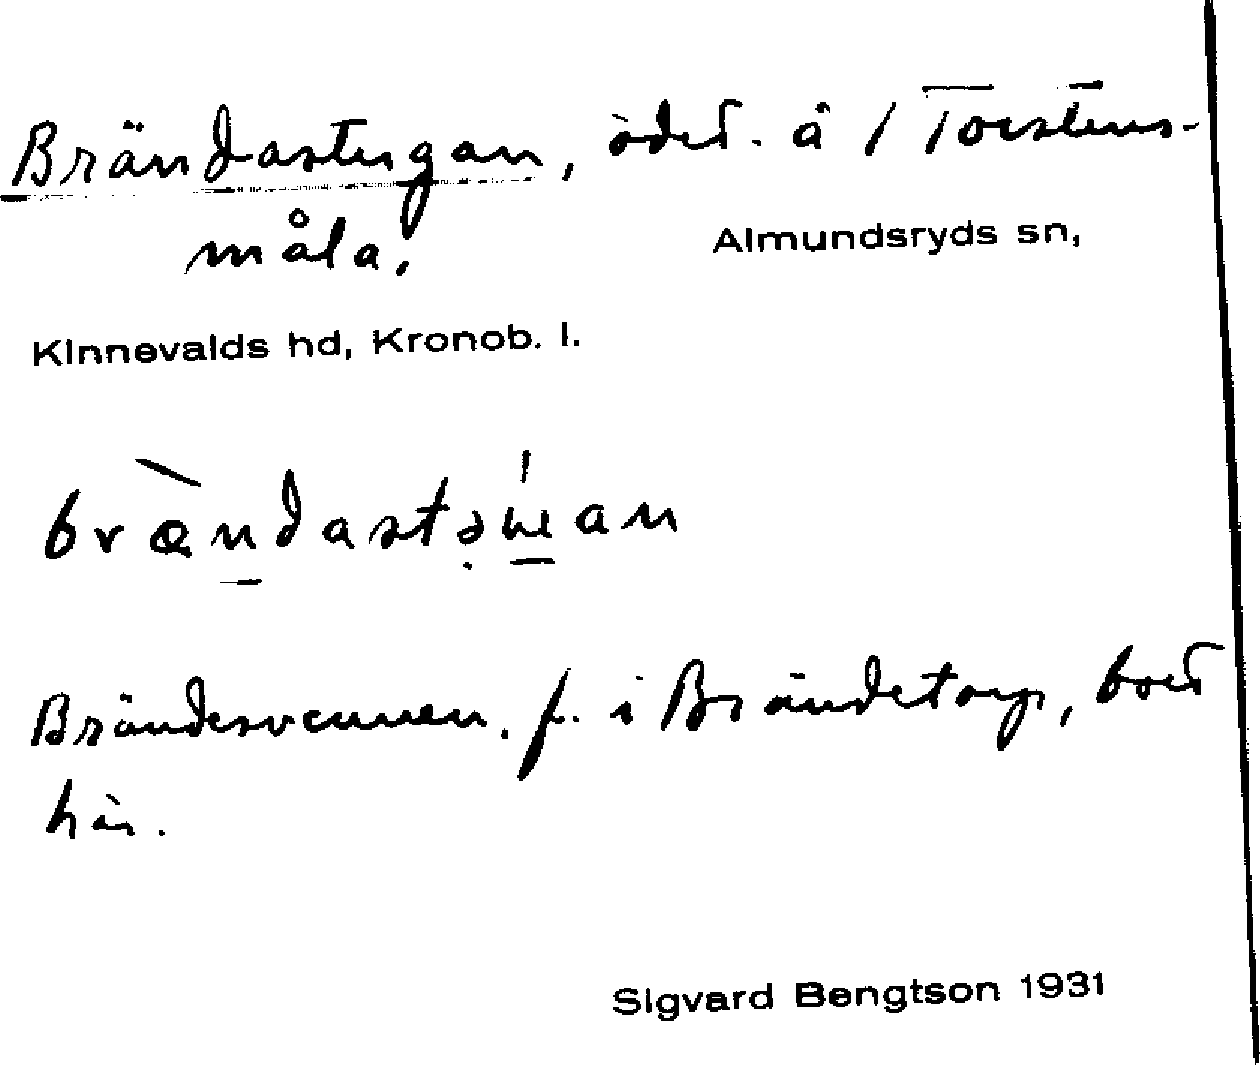 Brändastugan, ödet. å 1 Torstens-
måla.
Almundsryds sn,
Kinnevalds hd, Kronob. l.
Brändesvennen, f. i Brändetorp, bott
här.
Sigvard Bengtson 1931